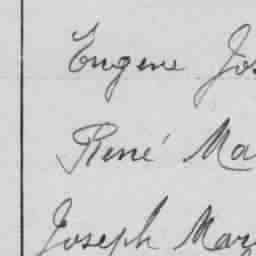 Eugene Jos
René Ma
Joseph Mar